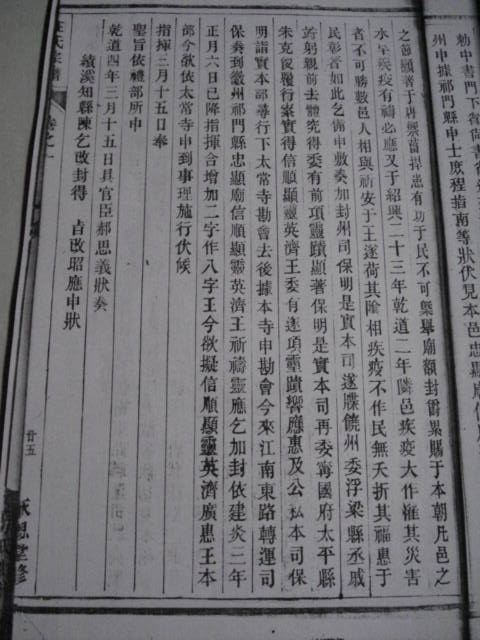 勅中書門下尚書省
州申據祁門縣申士庶程指南等狀伏見本邑忠顯廟
之節顯著于唐禦菑捍患有功于民不可槩舉廟額封爵累賜于本朝凡邑之
水旱疾疫有禱必應又于紹興二十三年乾道二年隣邑疾疫大作罹其災害
者不可勝數邑人相與祈安于王遂荷其陰相疾疫不作民無夭折其福惠于
民彰著如此乞備申敷奏加封州司保明是實本司遂牒饒州委浮梁縣丞戚
躬親前去體究得委有前項靈蹟顯著保明是實本司再委寧國府太平縣
朱克復履行案實得信順顯靈英濟王委有逐項靈蹟響應惠及公私本司保
明詣實本部尋行下太常寺勘會去後據本寺申勘會今來江南東路轉運司
保奏到徽州祁門縣忠顯廟信順顯靈英濟王祈禱靈應乞加封依建炎三年
正月六日已降指揮合增加二字作八字王今欲擬信順顯靈英濟廣惠王本
部今欲依太常寺申到事理施行伏候
指揮三月十五日奉
聖旨依禮部所申
乾道四年三月十五日具官臣郝思義狀奏
績溪知縣陳乞改封得 占改昭應申狀
氏宗譜
卷之一
廿五
承恩堂修